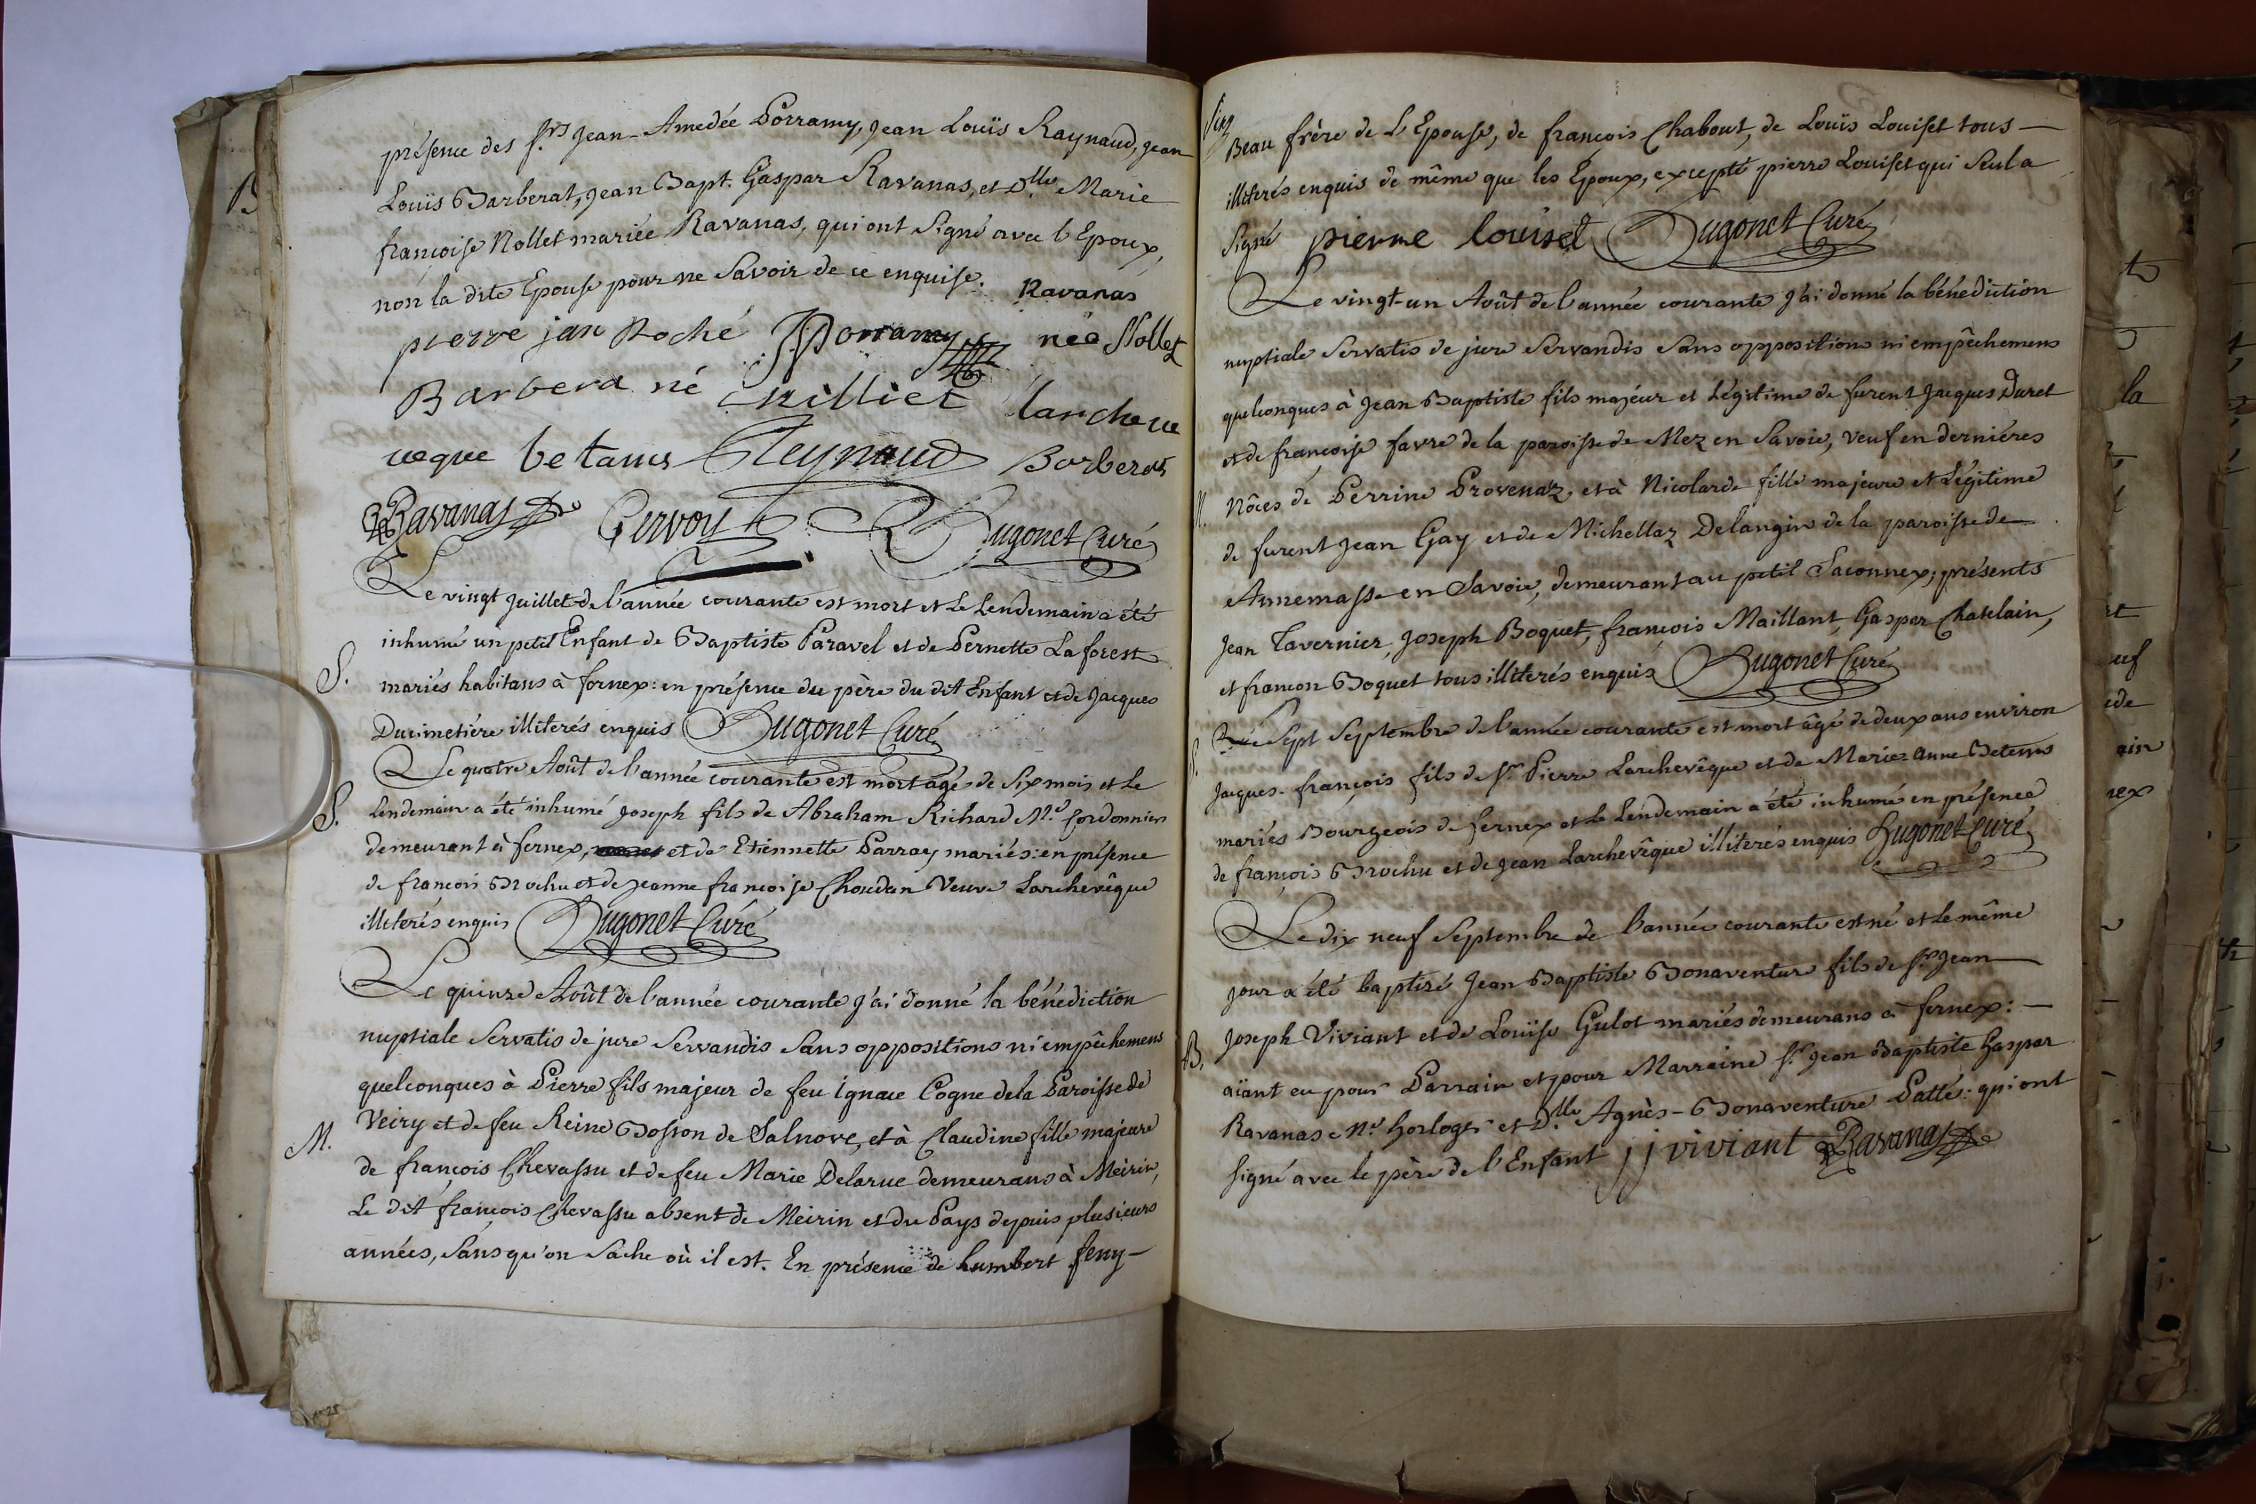 présence des Srs Jean-Amedée Porramy, Jean Louïs Raynaud, Jean
Louïs Barberat, Jean Bapt. Gaspar Ravanas, et Dlle Marie
françoise Nollet mariée Ravanas, qui ont Signé avec l'Epoux,
non la dite Epouse pour ne Savoir de ce enquise. Ravanas
pierre jan Roché Porramy née Nollet
Barbera né chilliet larcheve
veque betams Reynaud Borberat
Ravanas Cervoy Hugonet Curé
Le vingt Juillet de l'année courante est mort et Le Lendemain a été
inhumé un petit Enfant de Baptiste Paravel et de Pernette La forest
S. mariés habitans à fernex: en présence du père du dit Enfant et de Jacques
Ducimetière illiterés enquis Hugonet Curé
Le quatre Août de l'année courante est mort agé de Six mois et Le
S. Lendemain a été inhumé Joseph fils de Abraham Richard Me Cordonnier
demeurant à fernex, et de Etiennette Parray mariés: en présence
de françois Brochu et de Jeanne françoise Choudan Veuve Larchevêque
illiterés enquis Hugonet Curé
Le quinze Août de l'année courante j'ai donné la bénédiction
nuptiale Servatis de jure Servandis Sans oppositions ni empêchemens
quelconques à Pierre fils majeur de feu ignace Cogne de la Paroisse de
Veiry et de feu Reine Bosson de Salnove, et à Claudine fille majeure
M. de françois Chevassu et de feu Marie Delarue demeurans à Meirin,
Le dit françois Chevassu absent de Meirin et du Pays depuis plusieurs
années, Sans qu'on Sache où il est. En présence de humbert feny-
Beau frère de L'Epouse, de françois Chabout, de Louïs Louiset tous
illiterés enquis de même que les Epoux, excepté pierre Louiset qui Seul a
Signé pierre louiset Hugonet Curé
Le vingt-un Août de l'année courante j'ai donné la bénediction
nuptiale Servatis de jure Servandis Sans oppositions ni empêchemens
quelconques à Jean Baptiste fils majeur et Légitime de furent Jacques Duret
et de françoise favre de la paroisse de Mez en Savoie, veuf en dernières
M. Nôces de Perrine Provenaz, et à Nicolarde fille majeure et Légitime
de furent Jean Gay et de Michellaz Delangin de la paroisse de
Annemasse en Savoie, demeurant au petit Saconnex; présents
Jean Tavernier, Joseph Boquet, françois Maillant, Gaspar Chatelain,
et francon Boquet tous illiterés enquis Hugonet Curé
Le Sept Septembre de l'année courante est mort âgé de deux ans environ
S. Jacques-françois fils de Sr Pierre Larchevêque et de Marie-Anne Betems
mariés Bourgeois de fernex et Le Lendemain a été inhumé en présence
de françois Brochu et de Jean Larchevêque illiterés enquis Hugonet Curé
Le dix neuf Septembre de l'année courante est né et Le même
jour a été baptisé Jean Baptiste Bonaventure fils de Sr Jean
Joseph Viviant et de Louïse Gulot mariés demeurans à fernex:
B. aïant eu pour Parrain et pour Marraine Sr Jean Baptiste Gaspar
Ravanas Me horloger et Dlle Agnès-Bonaventure Patté: qui ont
Signé avec le père de l'Enfant jj viviant Ravanas